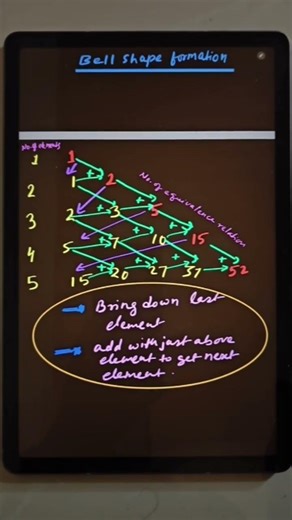 Bell shape formation
No. of elements
1 1
2 1 2
3 2 3 5
4 5 7 10 15
5 15 20 27 37 52
No. of equivalence relation
Bring down last
element
add with just above
element to get next
element.